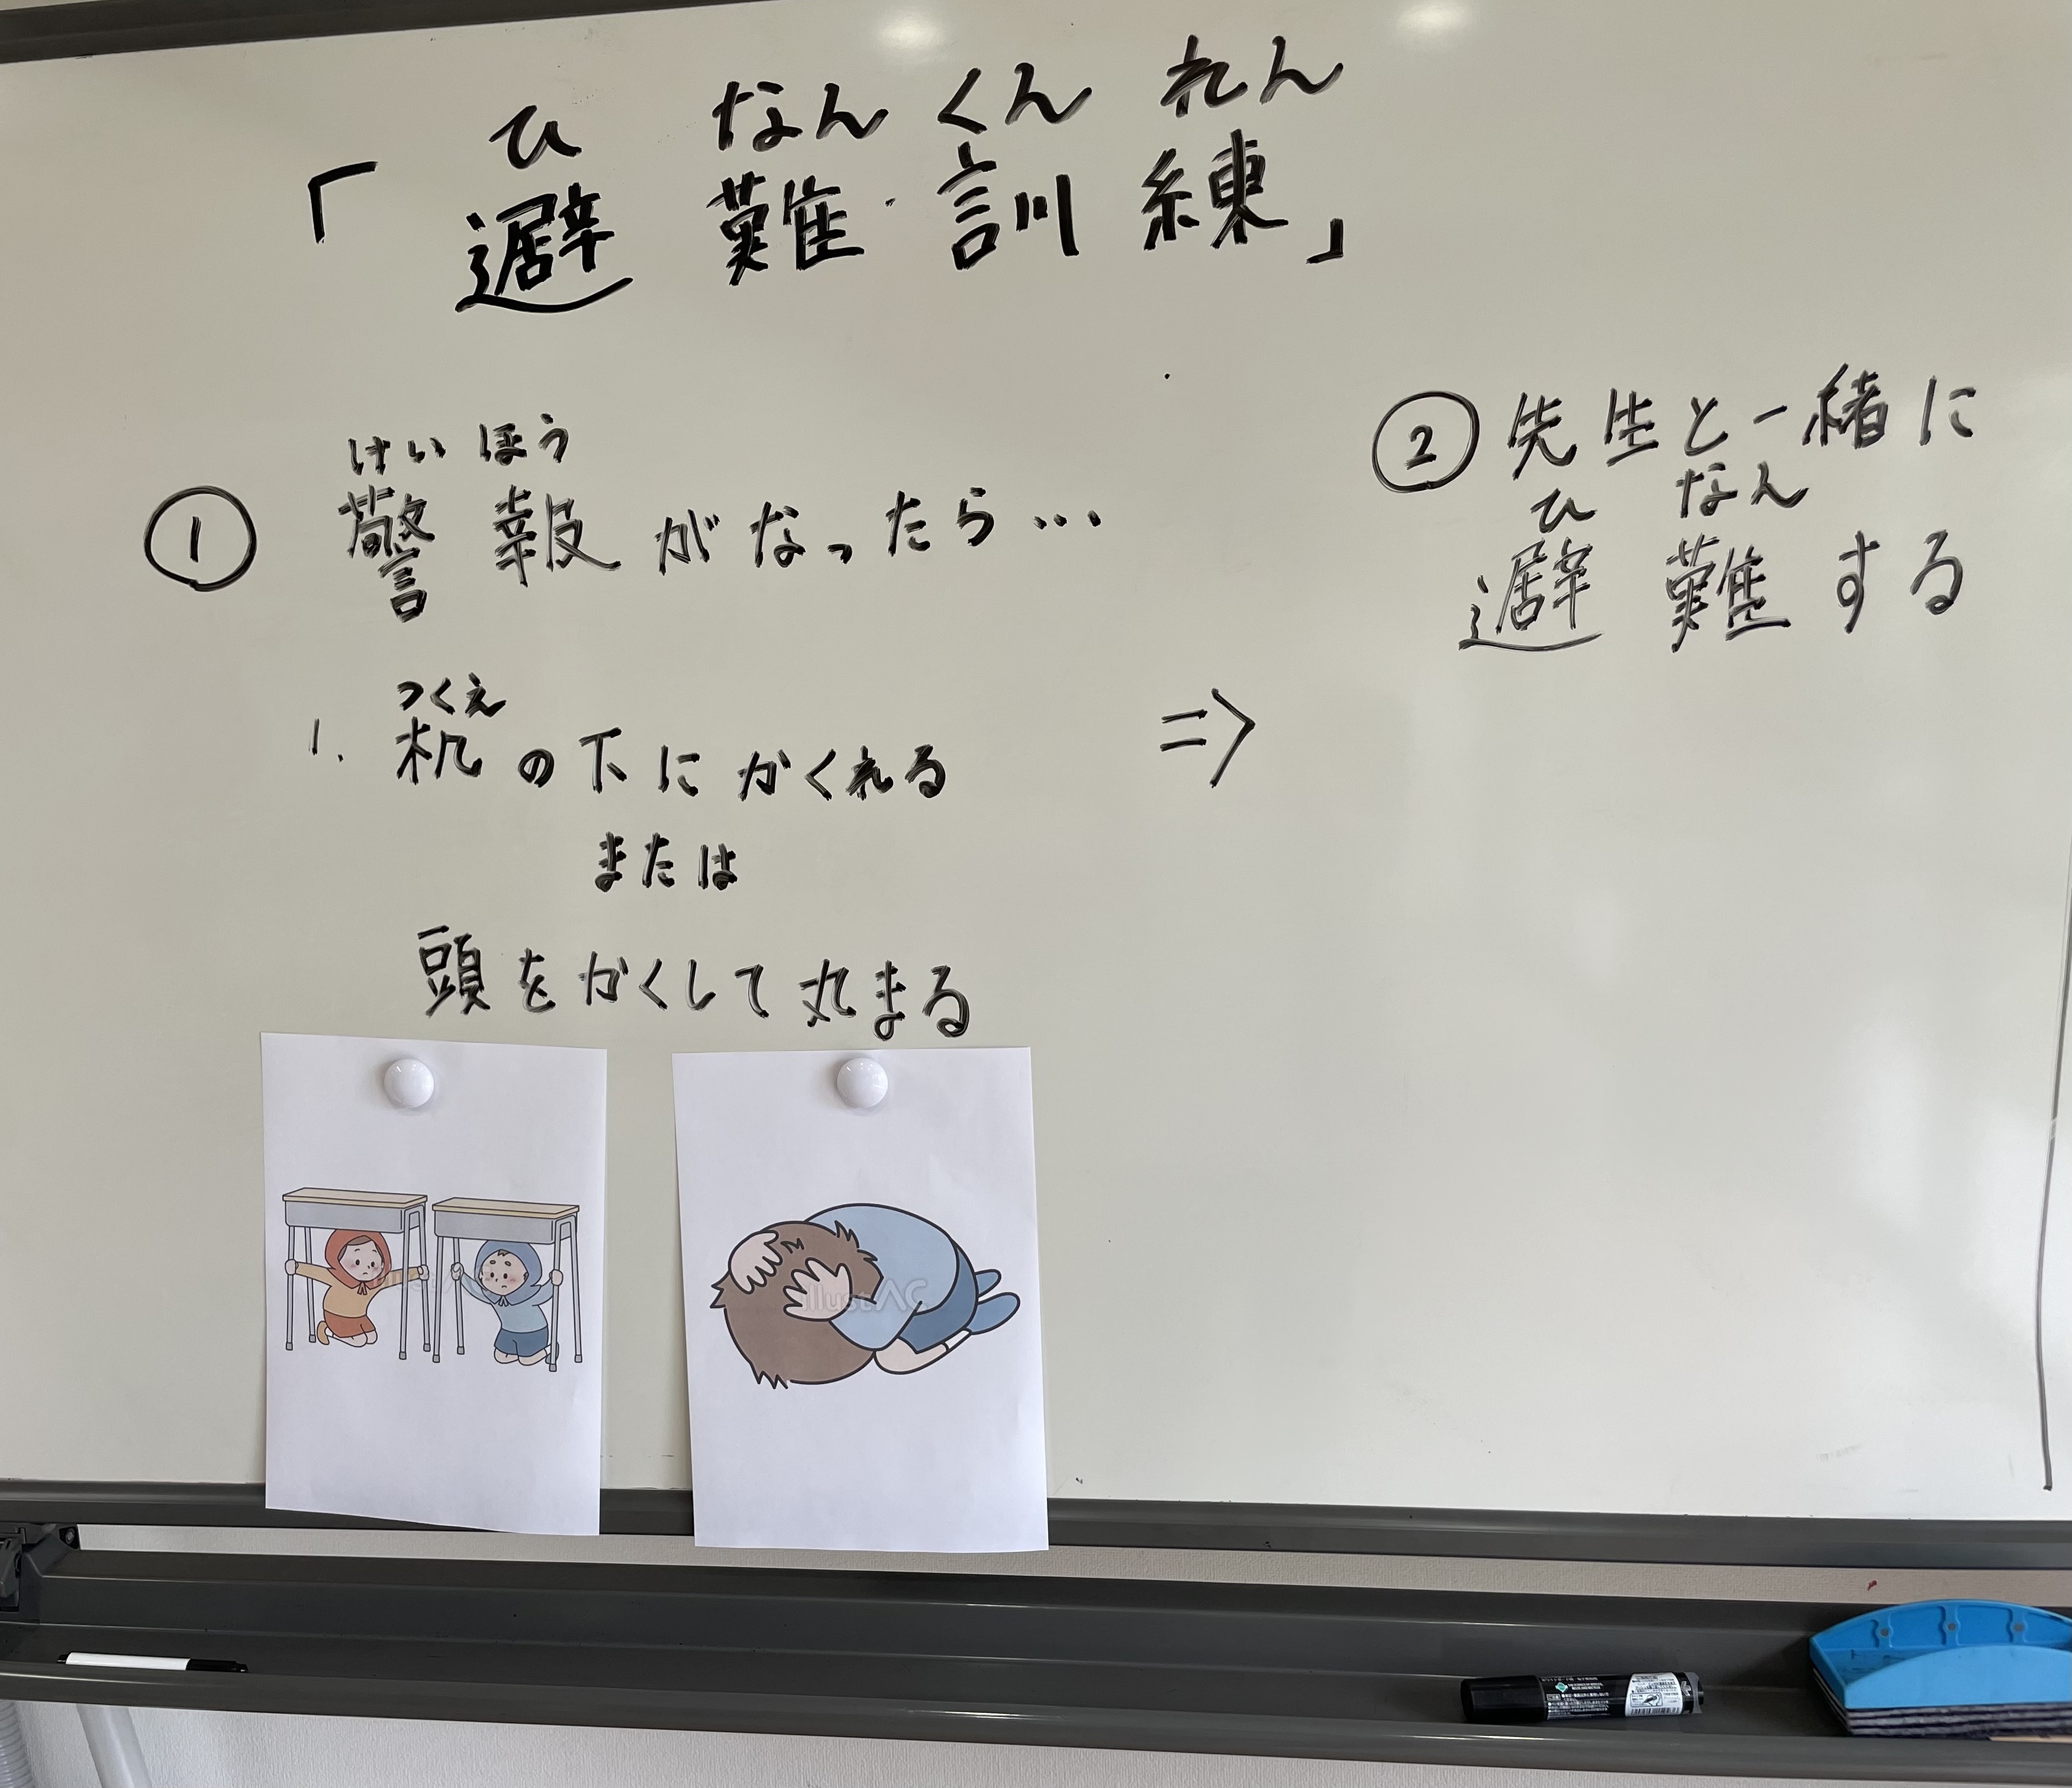 ひ なん くん れん
「避難訓練」
けい ほう
① 警報がなったら…
つくえ
1. 机の下にかくれる
または
頭をかくして丸まる
⇒
② 先生と一緒に
ひ なん
避難する
illustAC